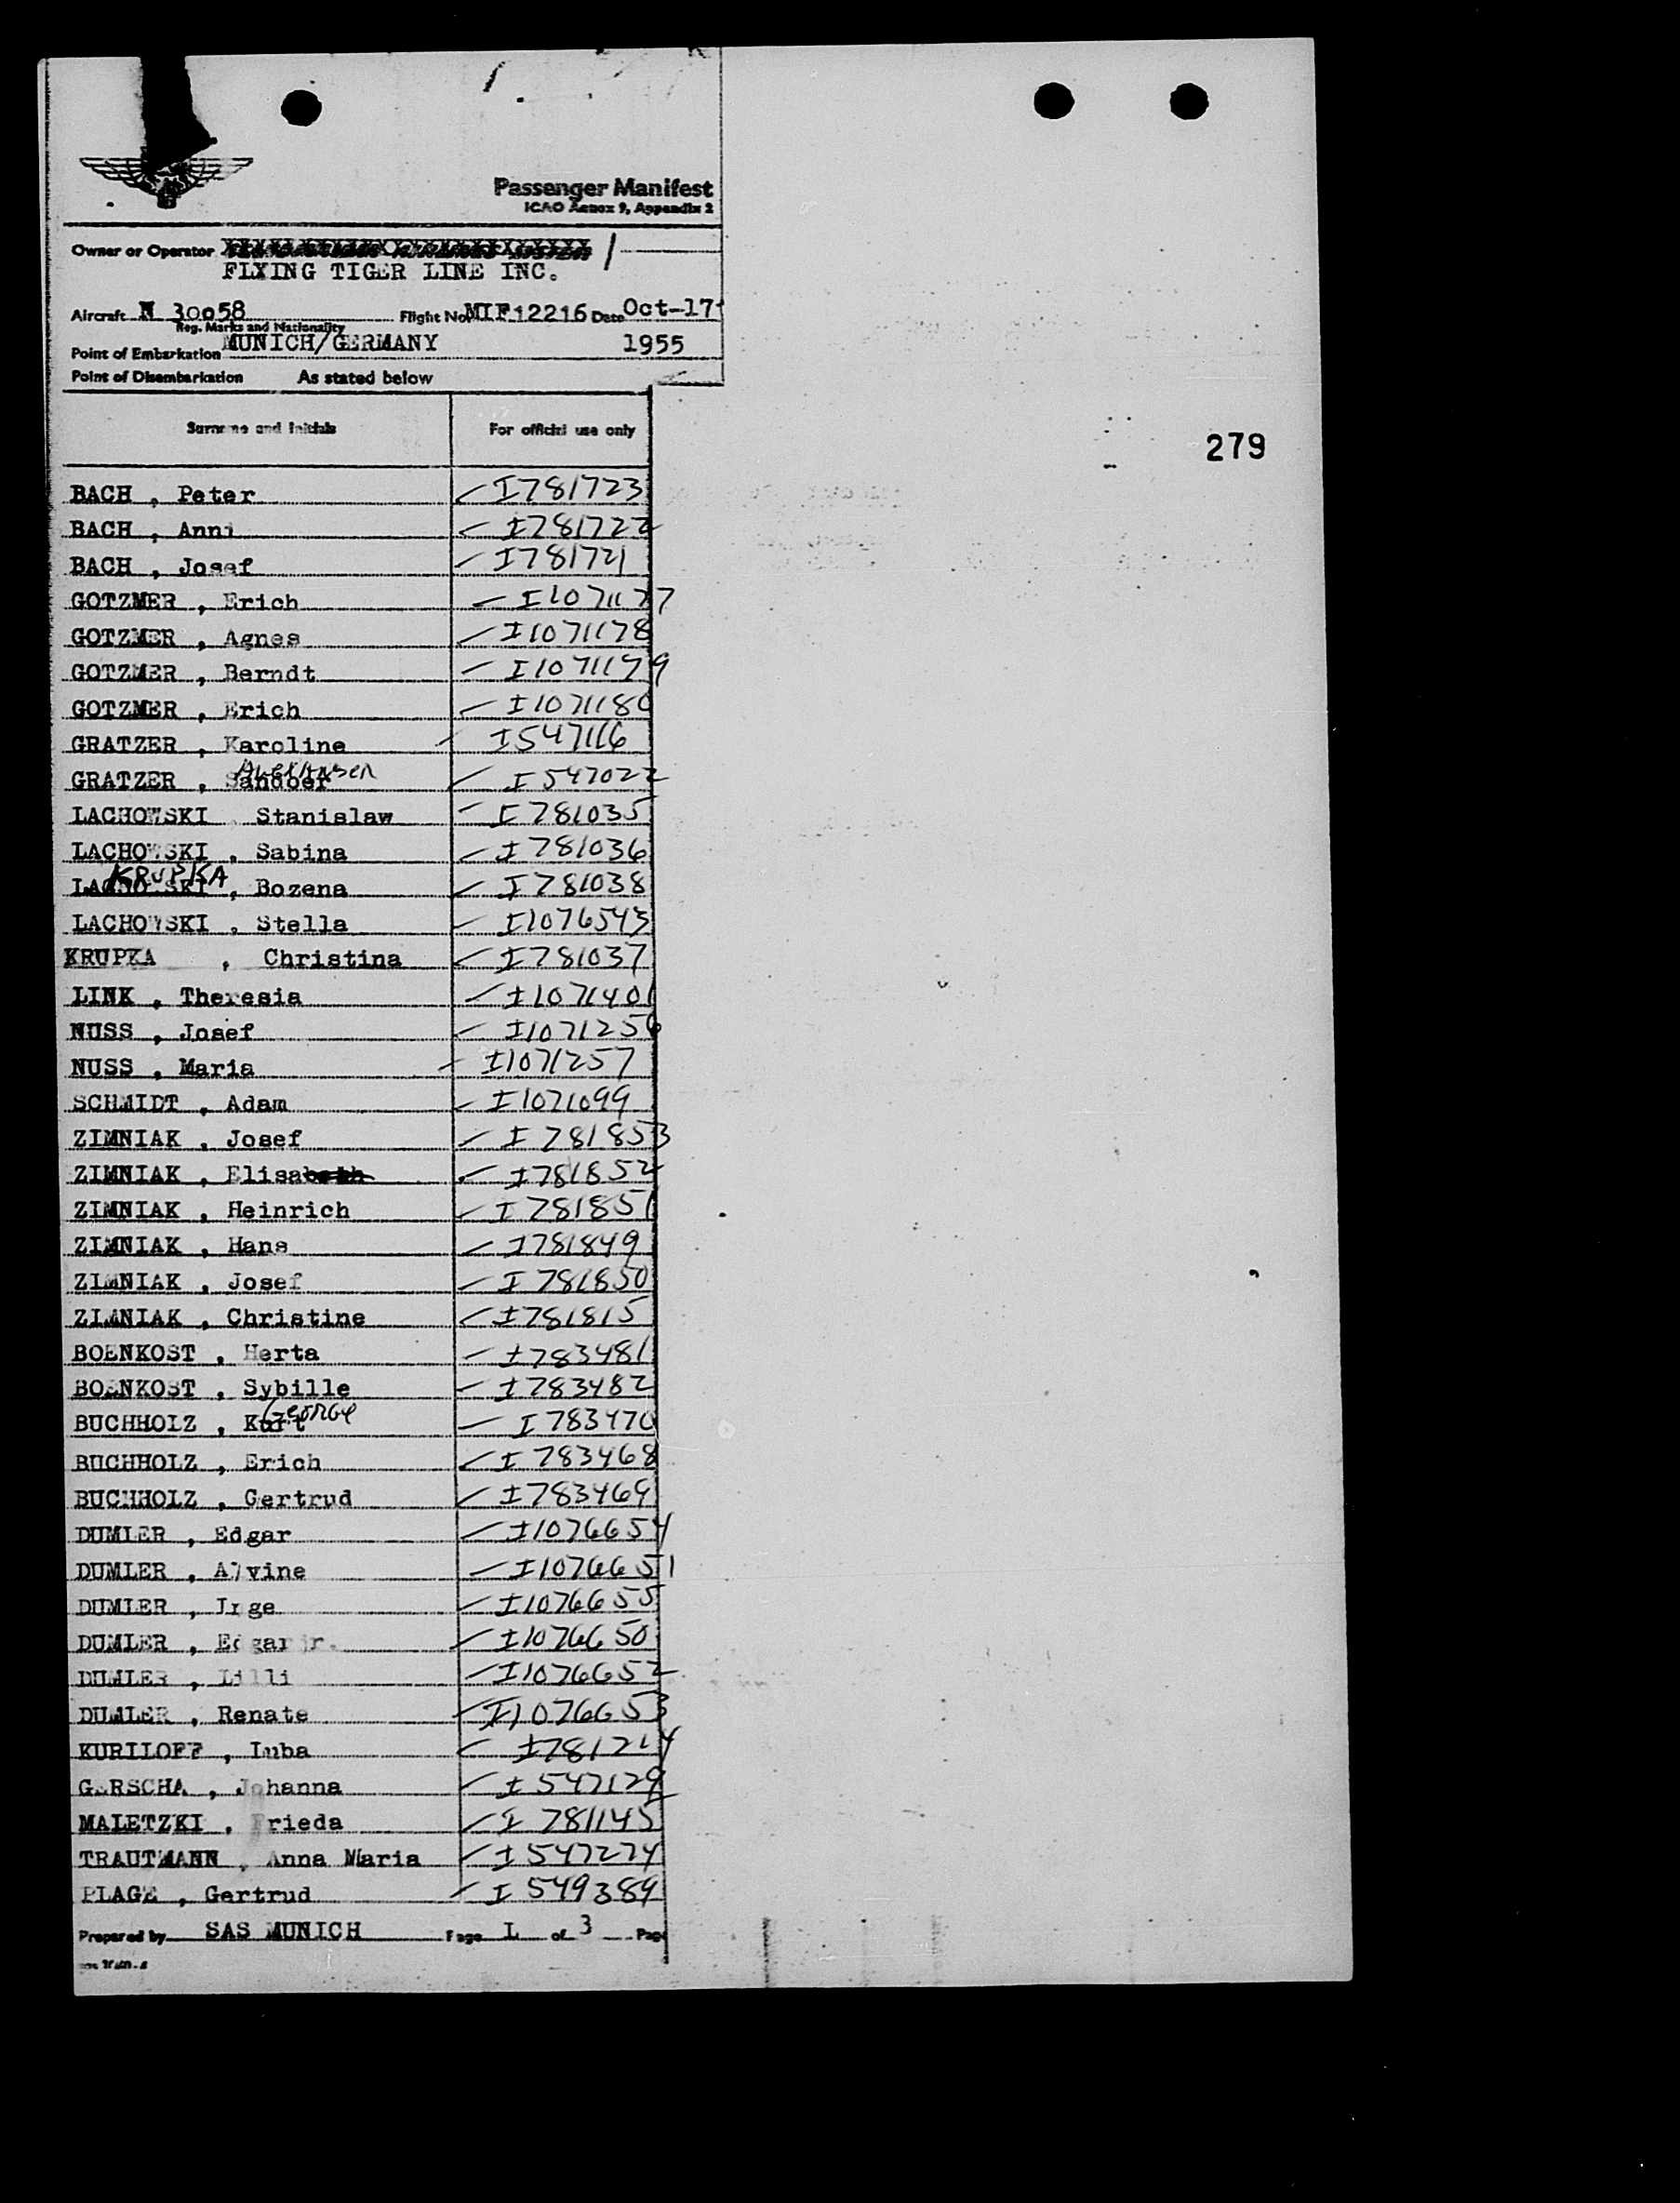 Passenger Manifest
ICAO Annex 9, Appendix 2
Owner or Operator
FLYING TIGER LINE INC.
Aircraft N 30058 Flight No. MIF12216 Date Oct-17-
Reg. Marks and Nationality
Point of Embarkation MUNICH/GERMANY 1955
Point of Disembarkation As stated below
Surname and Initials For official use only
279
BACH , Peter I781723
BACH , Anni I781722
BACH , Josef I781721
GOTZMER , Erich I1071177
GOTZMER , Agnes I1071178
GOTZMER , Berndt I1071179
GOTZMER , Erich I1071180
GRATZER , Karoline I547116
Alexander
GRATZER , Sandoer I547022
LACHOWSKI , Stanislaw I781035
LACHOWSKI , Sabina I781036
KRUPKA
LACHOWSKI , Bozena I781038
LACHOWSKI , Stella I1076543
KRUPKA , Christina I781037
LINK , Theresia I1071401
NUSS , Josef I1071256
NUSS , Maria I1071257
SCHMIDT , Adam I1071099
ZIMNIAK , Josef I781853
ZIMNIAK , Elisabeth I781852
ZIMNIAK , Heinrich I781851
ZIMNIAK , Hans I781849
ZIMNIAK , Josef I781850
ZIMNIAK , Christine I781815
BOENKOST , Herta I783481
BOENKOST , Sybille I783482
George
BUCHHOLZ , Kurt I783470
BUCHHOLZ , Erich I783468
BUCHHOLZ , Gertrud I783469
DUMLER , Edgar I1076654
DUMLER , Alvine I1076651
DUMLER , Inge I1076655
DUMLER , Edgar jr. I1076650
DUMLER , Lilli I1076652
DUMLER , Renate I1076653
KURILOFF , Luba I781214
GERSCHA , Johanna I547129
MALETZKI , Frieda I781145
TRAUTMANN , Anna Maria I547274
PLAGE , Gertrud I549389
Prepared by SAS MUNICH Page 1 of 3 Page